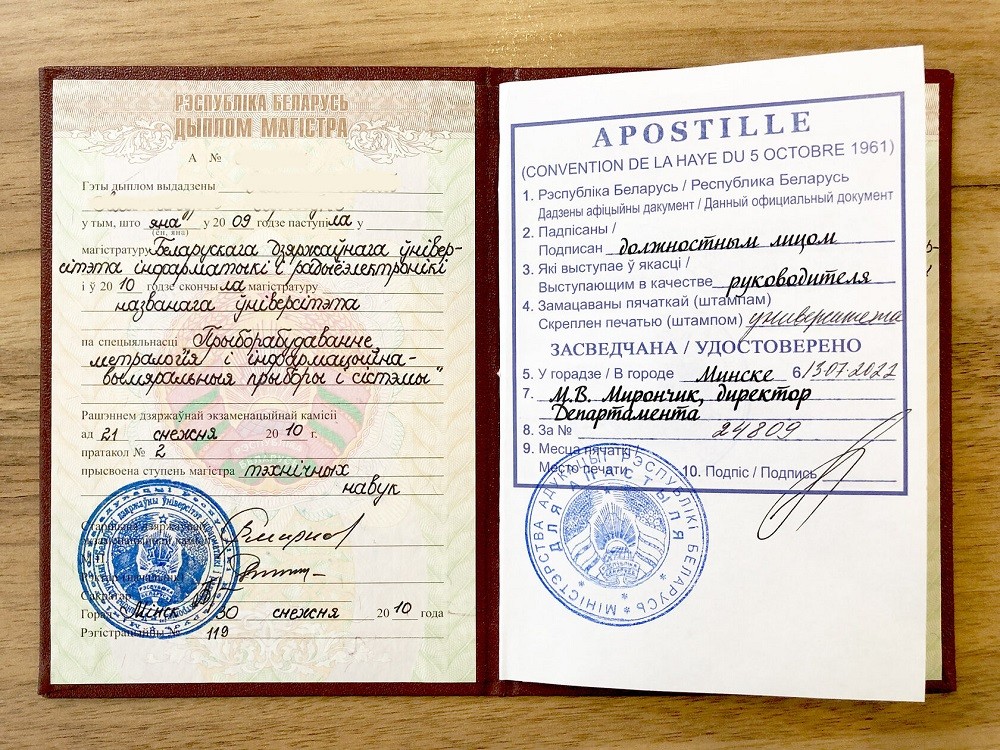 РЭСПУБЛІКА БЕЛАРУСЬ
ДЫПЛОМ МАГІСТРА
А №
Гэты дыплом выдадзены
у тым, што яна у 2009 годзе паступіла у
(ён, яна)
магістратуру Беларускага дзяржаўнага ўнівер-
сітэта інфарматыкі і радыёэлектронікі
і ў 2010 годзе скончыла магістратуру
названага ўніверсітэта
па спецыяльнасці "Прыборабудаванне,
метралогія і інфармацыйна-
вымяральныя прыборы і сістэмы"
Рашэннем дзяржаўнай экзаменацыйнай камісіі
ад 21 снежня 2010 г.
пратакол № 2
прысвоена ступень магістра тэхнічных
навук
Старшыня дзяржаўнай
экзаменацыйнай камісіі
М.П.
Рэктар
Сакратар
Горад Мінск 30 снежня 2010 года
Рэгістрацыйны № 119
APOSTILLE
(CONVENTION DE LA HAYE DU 5 OCTOBRE 1961)
1. Рэспубліка Беларусь / Республика Беларусь
Дадзены афіцыйны дакумент / Данный официальный документ
2. Падпісаны /
Подписан должностным лицом
3. Які выступае ў якасці /
Выступающим в качестве руководителя
4. Замацаваны пячаткай (штампам)
Скреплен печатью (штампом) университета
ЗАСВЕДЧАНА / УДОСТОВЕРЕНО
5. У горадзе / В городе Минске 6. 13.07.2022
7. М.В. Мирончик, директор
Департамента
8. За № 24809
9. Месца пячаткі
Место печати 10. Подпіс / Подпись
МІНІСТЭРСТВА АДУКАЦЫІ РЭСПУБЛІКІ БЕЛАРУСЬ
ДЛЯ АПАСТЫЛЯ